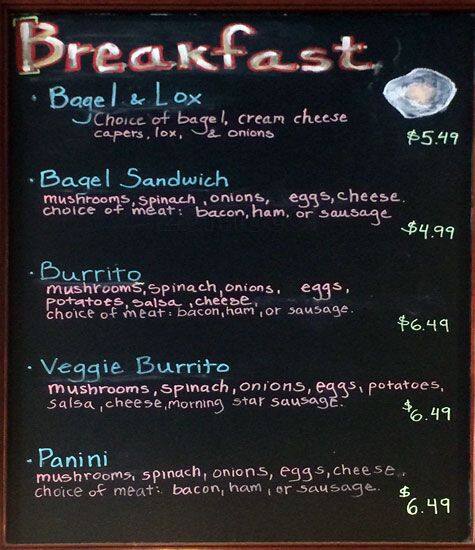 Breakfast
· Bagel & Lox
Choice of bagel, cream cheese
capers, lox, & onions
$5.49
· Bagel Sandwich
mushrooms, spinach, onions, eggs, cheese.
choice of meat: bacon, ham, or sausage
$4.99
· Burrito
mushrooms, spinach, onions, eggs,
potatoes, salsa, cheese,
choice of meat: bacon, ham, or sausage.
$6.49
· Veggie Burrito
mushrooms, spinach, onions, eggs, potatoes,
salsa, cheese, morning star sausage.
$6.49
· Panini
mushrooms, spinach, onions, eggs, cheese.
choice of meat: bacon, ham, or sausage.
$6.49